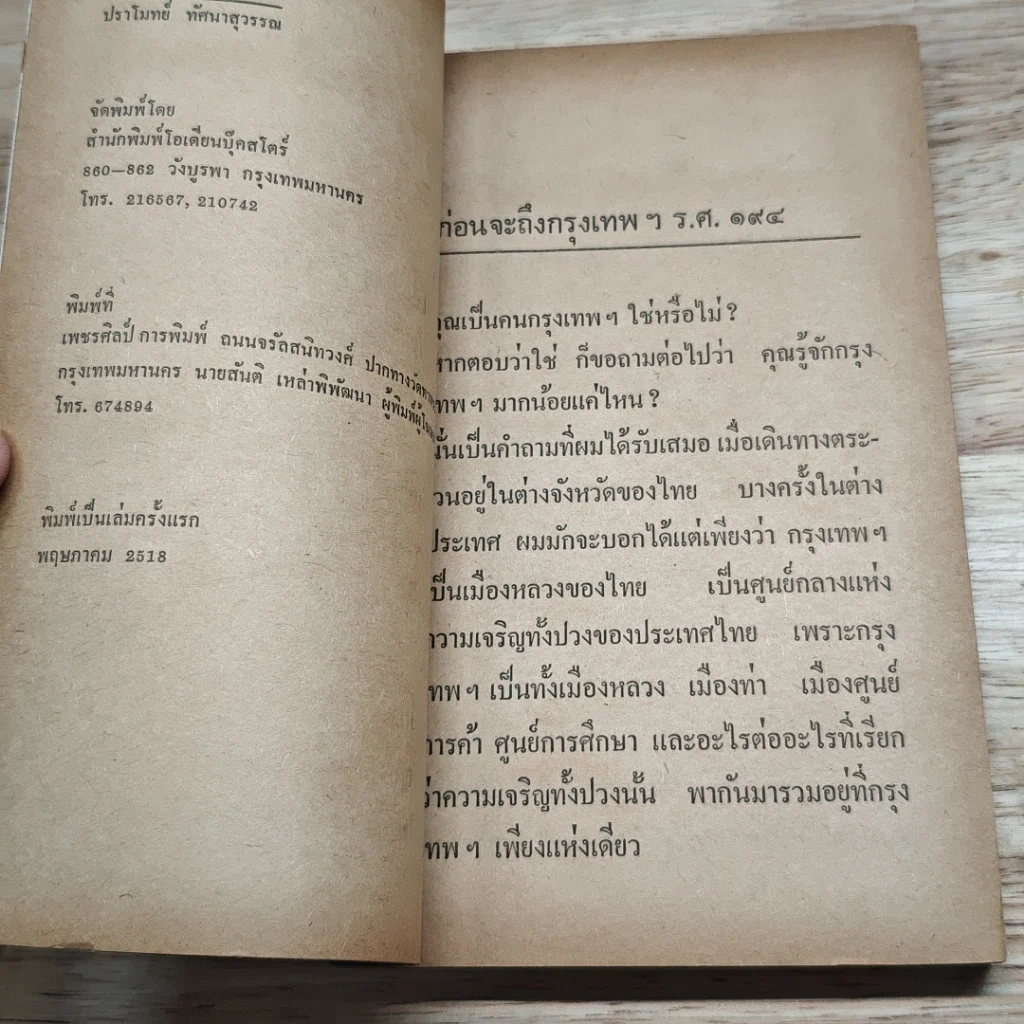 ปราโมทย์ ทัศนาสุวรรณ
จัดพิมพ์โดย
สำนักพิมพ์โอเดียนบุ๊คสโตร์
860—862 วังบูรพา กรุงเทพมหานคร
โทร. 216567, 210742
พิมพ์ที่
เพชรศิลป์ การพิมพ์ ถนนจรัลสนิทวงศ์ ปากทางวัด
กรุงเทพมหานคร นายสันติ เหล่าพิพัฒนา ผู้พิมพ์ผู้
โทร. 674894
พิมพ์เป็นเล่มครั้งแรก
พฤษภาคม 2518
ก่อนจะถึงกรุงเทพ ฯ ร.ศ. ๑๙๔
คุณเป็นคนกรุงเทพ ฯ ใช่หรือไม่ ?
หากตอบว่าใช่ ก็ขอถามต่อไปว่า คุณรู้จักกรุง
เทพ ฯ มากน้อยแค่ไหน ?
นั่นเป็นคำถามที่ผมได้รับเสมอ เมื่อเดินทางตระ-
เวนอยู่ในต่างจังหวัดของไทย บางครั้งในต่าง
ประเทศ ผมมักจะบอกได้แต่เพียงว่า กรุงเทพ ฯ
เป็นเมืองหลวงของไทย เป็นศูนย์กลางแห่ง
ความเจริญทั้งปวงของประเทศไทย เพราะกรุง
เทพ ฯ เป็นทั้งเมืองหลวง เมืองท่า เมืองศูนย์
การค้า ศูนย์การศึกษา และอะไรต่ออะไรที่เรียก
ว่าความเจริญทั้งปวงนั้น พากันมารวมอยู่ที่กรุง
เทพ ฯ เพียงแห่งเดียว